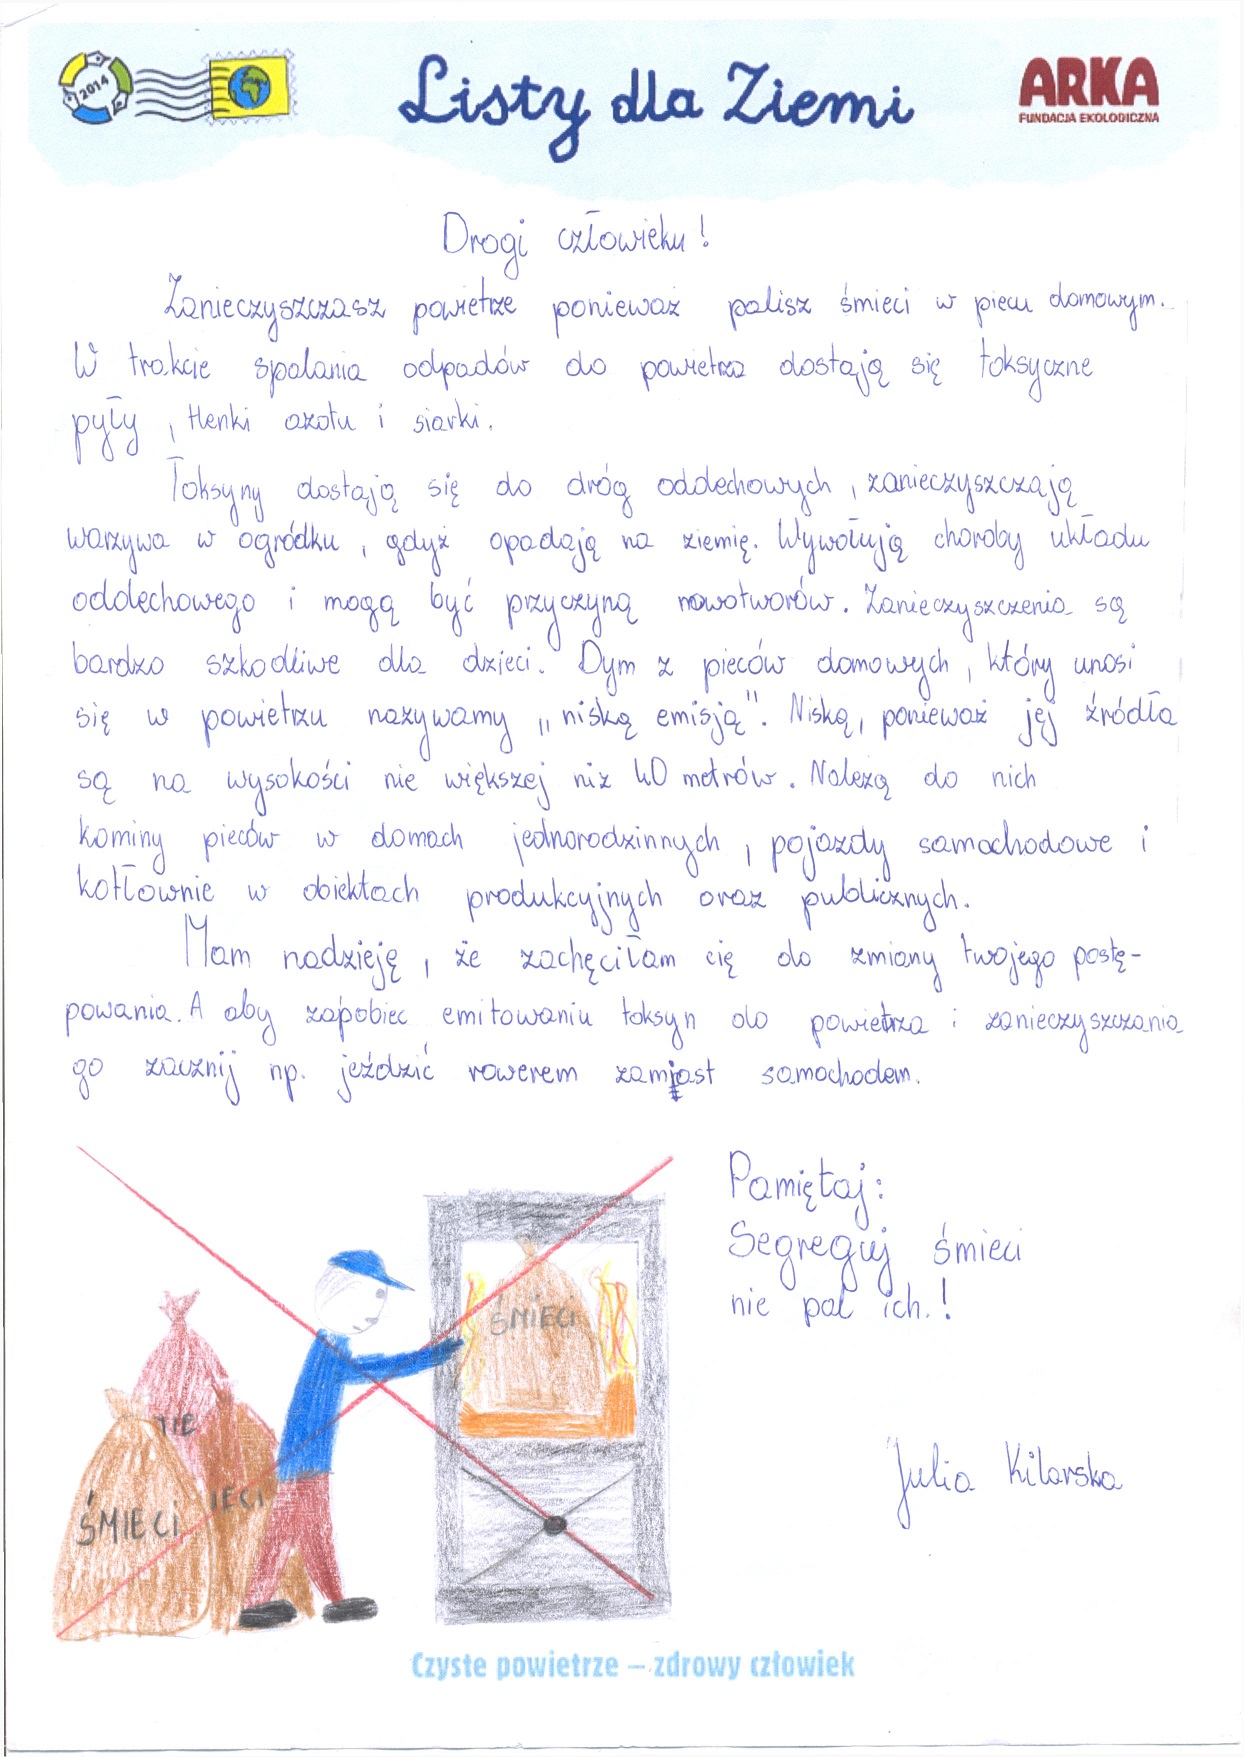 2014
Listy dla Ziemi
ARKA
FUNDACJA EKOLOGICZNA
Drogi człowieku!
Zanieczyszczasz powietrze ponieważ palisz śmieci w piecu domowym.
W trakcie spalania odpadów do powietrza dostają się toksyczne
pyły, tlenki azotu i siarki.
Toksyny dostają się do dróg oddechowych, zanieczyszczają
warzywa w ogródku, gdyż opadają na ziemię. Wywołują choroby układu
oddechowego i mogą być przyczyną nowotworów. Zanieczyszczenia są
bardzo szkodliwe dla dzieci. Dym z pieców domowych, który unosi
się w powietrzu nazywamy „niską emisją". Niską, ponieważ jej źródła
są na wysokości nie większej niż 40 metrów. Należą do nich
kominy pieców w domach jednorodzinnych, pojazdy samochodowe i
kotłownie w obiektach produkcyjnych oraz publicznych.
Mam nadzieję, że zachęciłam cię do zmiany twojego postę-
powania. A aby zapobiec emitowaniu toksyn do powietrza i zanieczyszczania
go zacznij np. jeździć rowerem zamiast samochodem.
Pamiętaj:
Segreguj śmieci
nie pal ich.!
ŚMIECI
IE
IECI
ŚMIECI
Julia Kilarska
Czyste powietrze – zdrowy człowiek